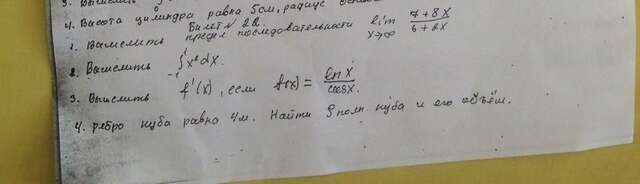 4. Высота цилиндра равна 5см, радиус
Билет № 22.
1. Вычислить предел последовательности lim x→∞ 7+8x / 6+2x
2. Вычислить ∫ -1 1 x² dx.
3. Вычислить f'(x), если f(x) = ln x / cos x.
4. ребро куба равна 4м. Найти S полн. куба и его объём.